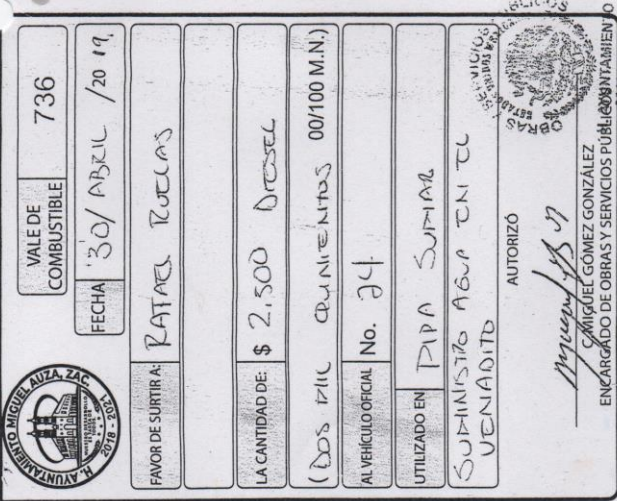 H. AYUNTAMIENTO MIGUEL AUZA, ZAC.
2018 - 2021
VALE DE
COMBUSTIBLE
736
FECHA 30/ ABRIL /2019.
FAVOR DE SURTIR A: RAFAEL RUELAS
LA CANTIDAD DE: $ 2,500 DIESEL
(DOS MIL QUINIENTOS 00/100 M.N.)
AL VEHÍCULO OFICIAL No. 24
UTILIZADO EN PIPA SUMAR
SUMINISTRO AGUA EN EL
VENADITO
AUTORIZÓ
C. MIGUEL GÓMEZ GONZÁLEZ
ENCARGADO DE OBRAS Y SERVICIOS PÚBLICOS
H. AYUNTAMIENTO
OBRAS Y SERVICIOS
ESTADOS UNIDOS